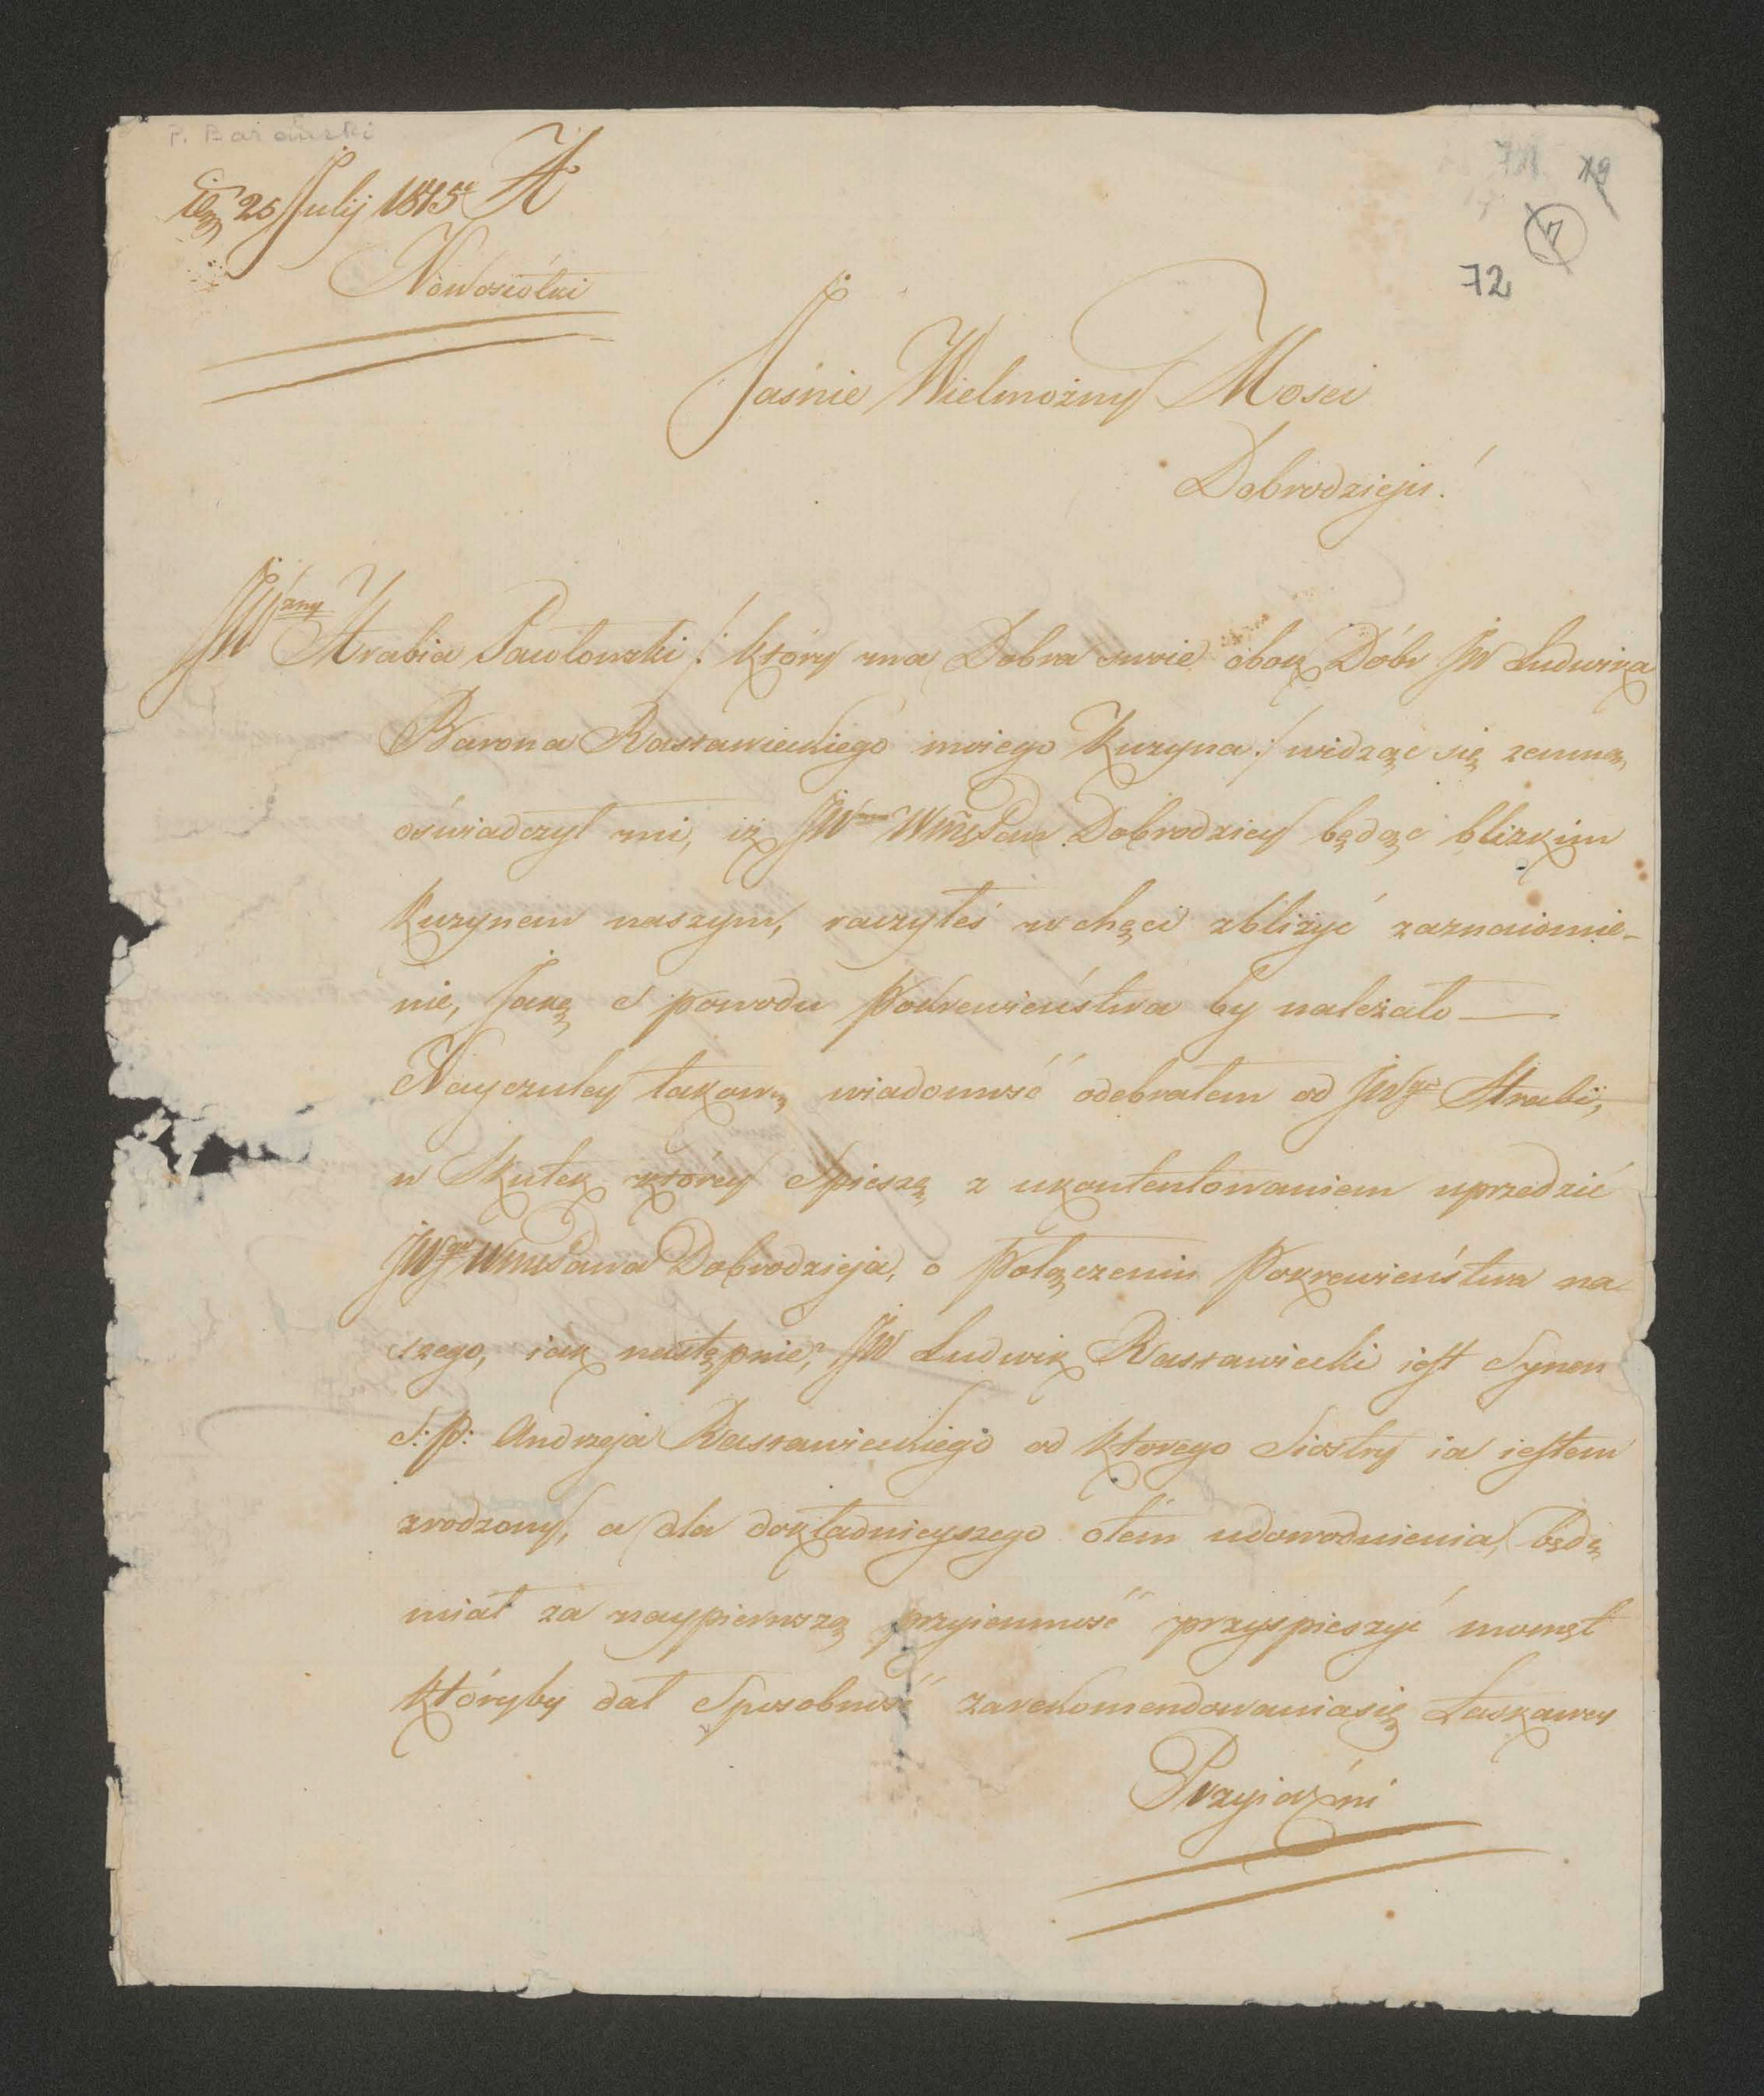 P. Barański
25 Julij 1815
Nowosiółki
72
7
19
Jaśnie Wielmożny Mosci
Dobrodzieju!
JWżny Hrabia Pawłowski /: który ma Dobra swoie obok Dóbr JW Ludwika
Barona Rastawieckiego moiego Kuzyna :/ widząc się zemną,
oświadczył mi, iż JW Pan Dobrodziey będąc blizkim
Kuzynem naszym, raczyłeś w chęci zbliżyć zaznaiomie-
nie, Jakę s powodu Pokrewieństwa by należało —
Nayczuley takową wiadomość odebrałem od JWgo Hrabi,
w Skutek którey Spieszę z ukontentowaniem uprzedzić
JWgo WmPana Dobrodzieja, o Połączeniu Pokrewieństwa na-
szego, iak następnie, JW Ludwik Rastawiecki iest Synem
S: P: Andrzeja Rastawieckiego od ktorego Siostry ia iestem
zrodzony, a dla dokładnieyszego otém udowodnienia, będę
miał za naypierwszą przyiemność przyspieszyć momęt
któryby dał Sposobność zarekomendowaniasię Łaskawey
Przyiaźni